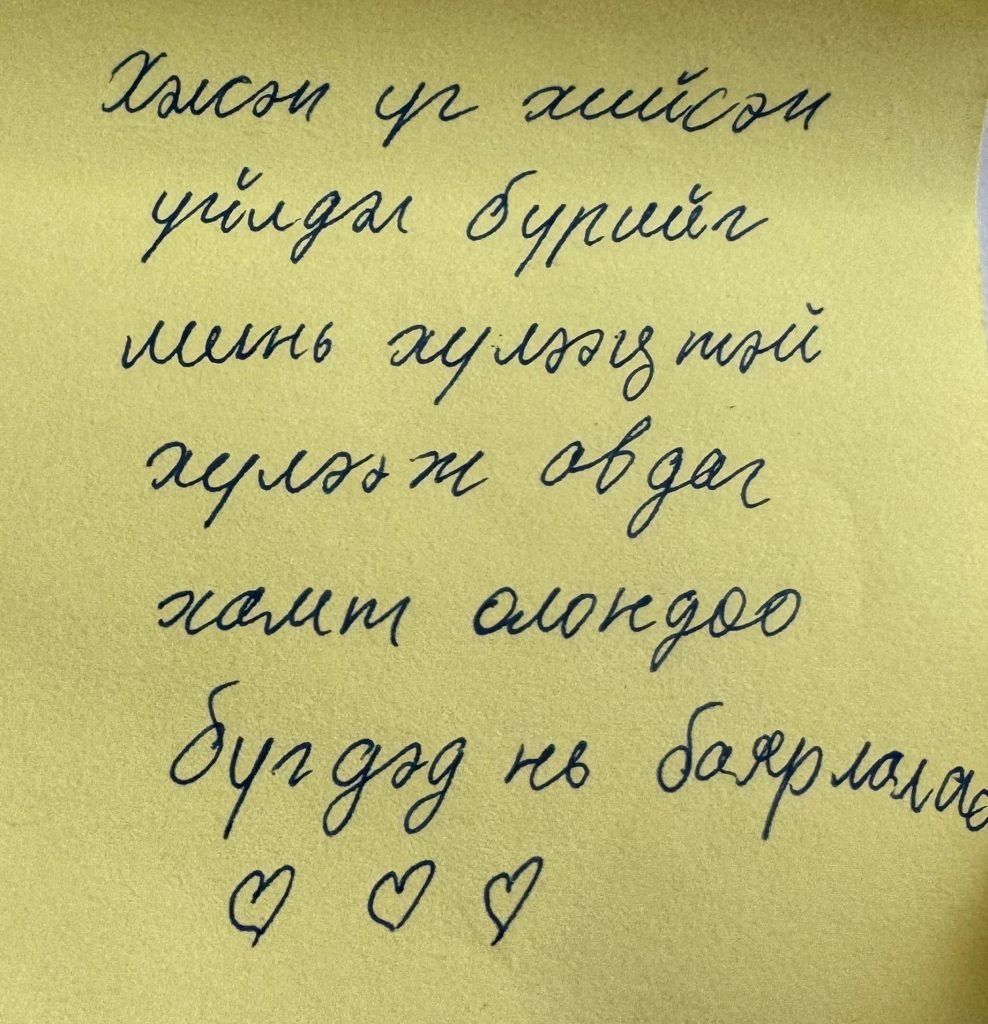 Хэлсэн үг хийсэн
үйлдэл бүрийг
минь хүлээцтэй
хүлээж авдаг
хамт олондоо
бүгдэд нь баярлалаа
♡ ♡ ♡